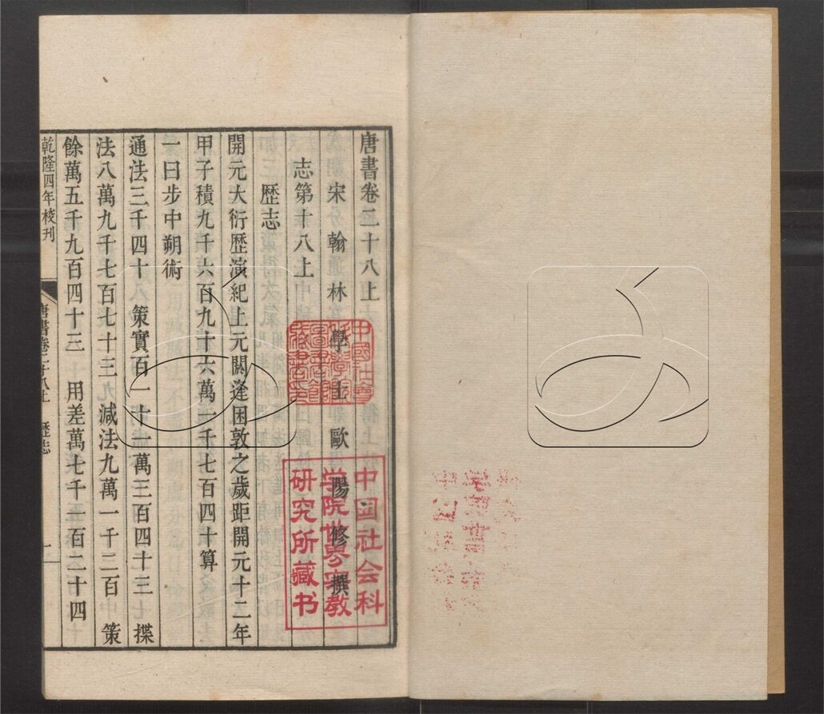 唐書卷二十八上
宋翰林學士歐陽修撰
志第十八上
歷志
開元大衍歷演紀上元閼逢困敦之歲距開元十二年
甲子積九千六百九十六萬一千七百四十算
一曰步中朔術
通法三千四十 策實百一十一萬三百四十三 揲
法八萬九千七百七十三 減法九萬一千二百 策
餘萬五千九百四十三 用差萬七千一百二十四
乾隆四年校刊
唐書卷二十八上 歷志 一
中國社會
圖書館
中国社会科
学院世界宗教
研究所藏书